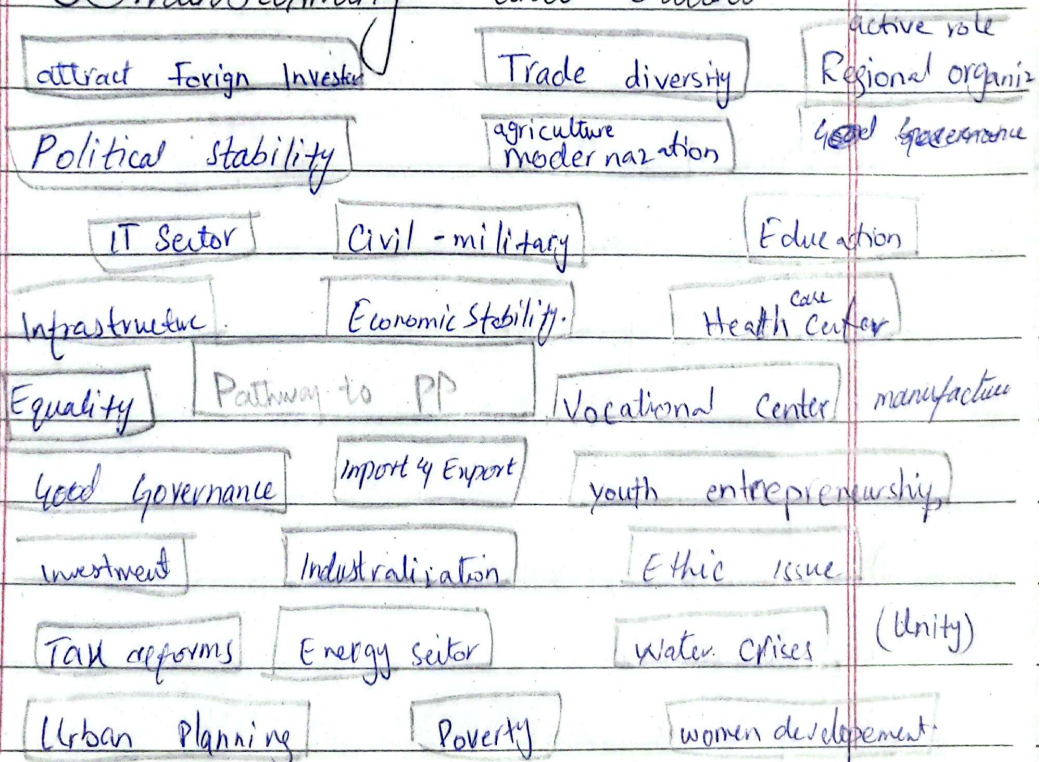 active role
attract Forign Invester Trade diversity Regional organiz
Political stability agriculture modernazation Good Governance
IT Sector Civil - military Education
Infrastructure Economic Stability. Health care Center
Equality Pathway to PP Vocational Center manufacture
Good Governance Import & Export youth entrepreneurship
Investment Industralization Ethic issue
Tax reforms Energy sector Water crises (Unity)
Urban Planning Poverty women developement.